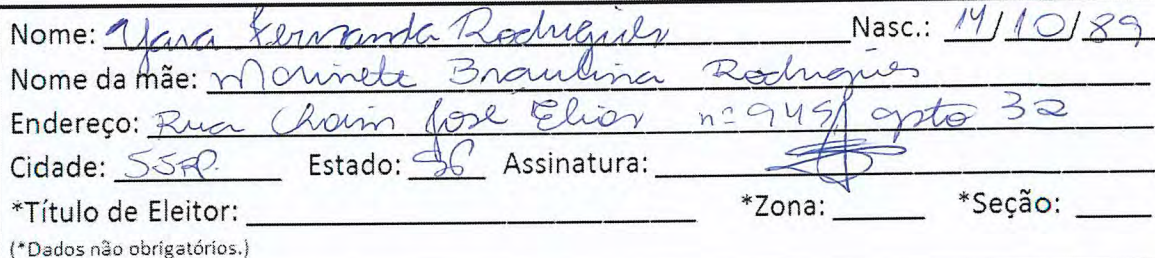 Nome: Yara Fernanda Rodrigues Nasc.: 14/10/89
Nome da mãe: Marinete Braulina Rodrigues
Endereço: Rua Chain José Elias nº 949 apto 32
Cidade: Estado: Assinatura:
*Título de Eleitor: *Zona: *Seção:
(*Dados não obrigatórios.)